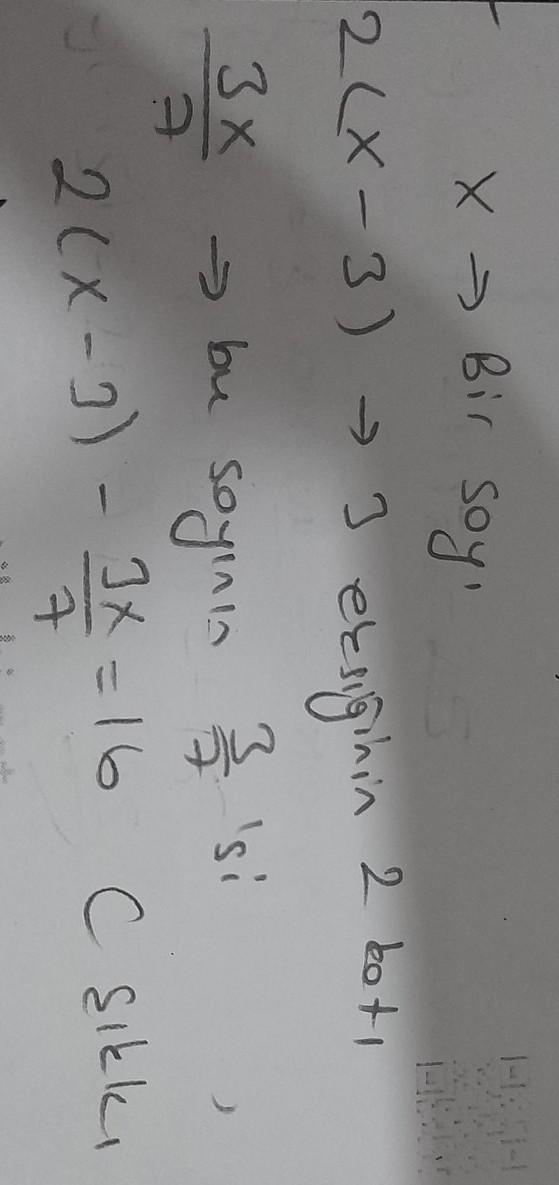 x → Bir sayı
2(x-3) → 3 eksiğinin 2 katı
3x/7 → bu sayının 3/7 'si
2(x-3) - 3x/7 = 16 C şıkkı